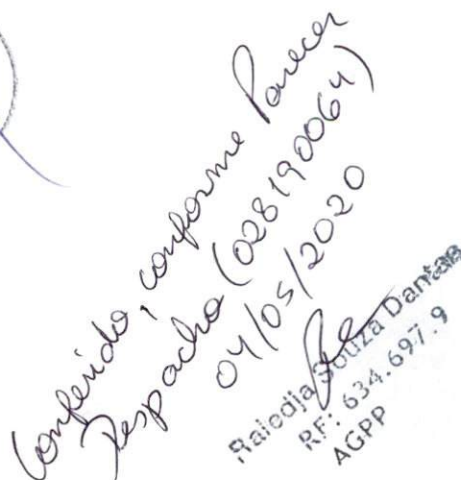 Conferido, conforme Parecer
Despacho (028190064)
04/05/2020
Raledja Souza Dantas
RF: 634.697.9
AGPP